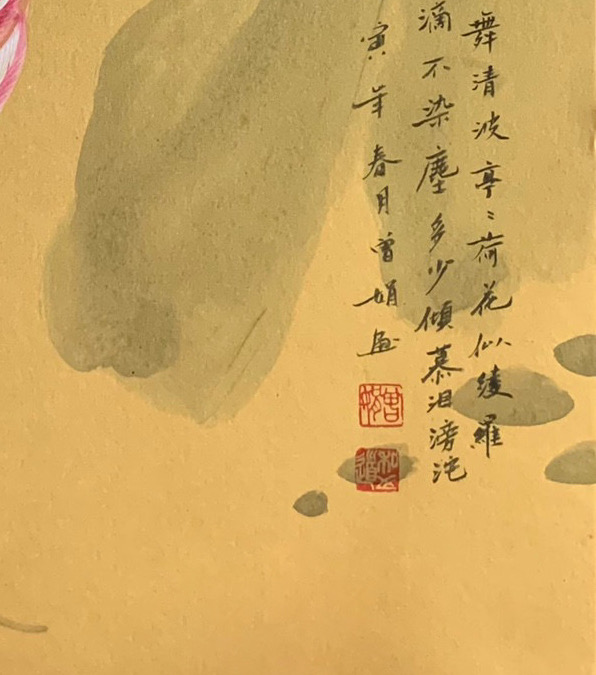 舞清波亭〻荷花似綾羅
滴不染塵多少傾慕淚滂沱
寅年春月曾娟画
曾娟